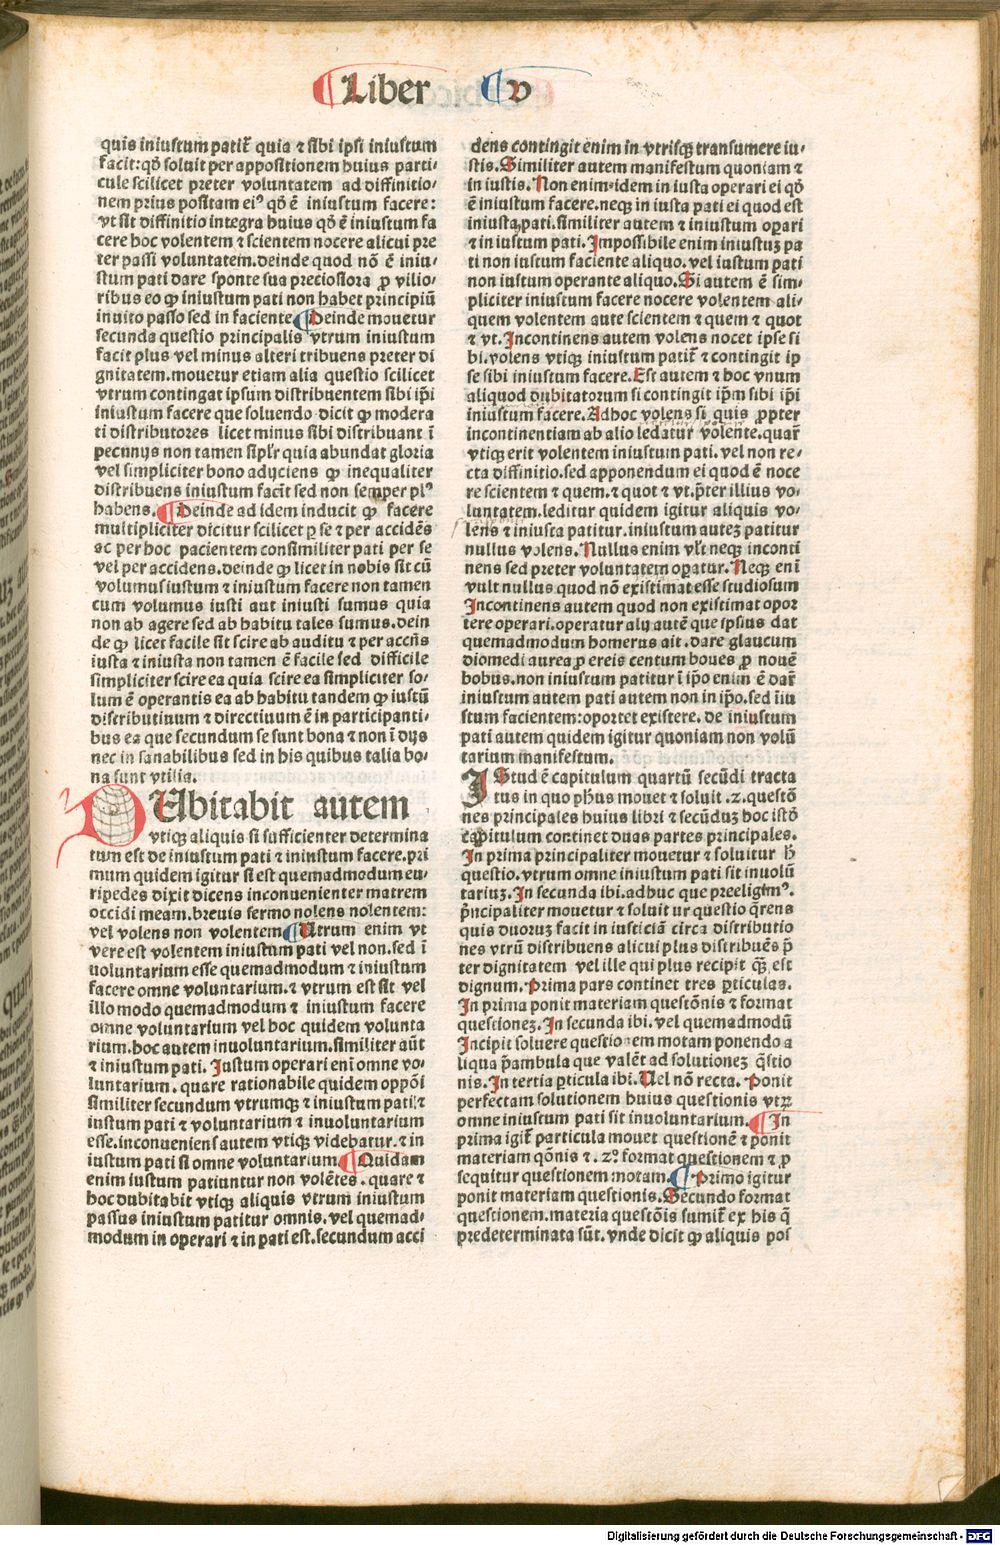 Liber v
quis iniustum patit̃ quia ⁊ sibi ipsi iniustum
facit: qď soluit per appositionem huius parti⸗
cule scilicet preter voluntatem ad diffinitio⸗
nem prius positam ei⁹ qď ē iniustum facere:
vt sit diffinitio integra huius qď ē iniustum fa
cere hoc volentem ⁊ scientem nocere alicui pre
ter passi voluntatem. deinde quod nō ē iniu⸗
stum pati dare sponte sua preciosiora ꝓ vilio⸗
ribus eo ꝙ iniustum pati non habet principiū
in uito passo sed in faciente. ¶ Deinde mouetur
secunda questio principalis vtrum iniustum
facit plus vel minus alteri tribuens preter di
gnitatem. mouetur etiam alia questio scilicet
vtrum contingat ipsum distribuentem sibi ip̄i
iniustum facere que soluendo dicit ꝙ modera
ti distributores licet minus sibi distribuant ī
pecunijs non tamen siplr̃ quia abundat gloria
vel simpliciter bono adijciens ꝙ inequaliter
distribuens iniustum facit sed non semper pl⁹
habens. ¶ Deinde ad idem inducit ꝙ facere
multipliciter dicitur scilicet ꝑ se ⁊ per accidēs
ac per hoc pacientem consimiliter pati per se
vel per accidens. deinde ꝙ licet in nobis sit cū
volumus iustum ⁊ iniustum facere non tamen
cum volumus iusti aut iniusti sumus quia
non ab agere sed ab habitu tales sumus. dein
de ꝙ licet facile sit scire ab auditu ⁊ per accñs
iusta ⁊ iniusta non tamen ē facile sed difficile
simpliciter scire ea quia scire ea simpliciter so⸗
lum ē operantis ea ab habitu tandem ꝙ iustū
distributiuum ⁊ directiuum ē in participanti⸗
bus ea que secundum se sunt bona ⁊ non ī dijs
nec in sanabilibus sed in his quibus talia bo⸗
na sunt vtilia.
DUbitabit autem
vtiqꝫ aliquis si sufficienter determina
tum est de iniustum pati ⁊ ininstum facere. pri
mum quidem igitur si est quemadmodum eu⸗
ripedes dixit dicens inconuenienter matrem
occidi meam. breuis sermo nolens nolentem:
vel volens non volentem. ¶ Utrum enim vt
vere est volentem iniustum pati vel non. sed ī
uoluntarium esse quemadmodum ⁊ iniustum
facere omne voluntarium. ⁊ vtrum est sit vel
illo modo quemadmodum ⁊ iniustum facere
omne voluntarium vel hoc quidem volunta
rium. hoc autem inuoluntarium. similiter aūt
⁊ iniustum pati. Iustum operari enī omne vo⸗
luntarium. quare rationabile quidem oppōi
similiter secundum vtrumqꝫ ⁊ iniustum pati ⁊
iustum pati ⁊ voluntarium ⁊ inuoluntarium
esse. inconueniens autem vtiqꝫ videbatur. ⁊ in
iustum pati si omne voluntarium. ¶ Quidam
enim iustum patiuntur non volētes. quare ⁊
hoc dubitabit vtiqꝫ aliquis vtrum iniustum
passus iniustum patitur omnis. vel quemad⸗
modum in operari ⁊ in pati est. secundum acci
dens contingit enim in vtrisqꝫ transumere iu⸗
stis. Similiter autem manifestum quoniam ⁊
in iustis. Non enim idem in iusta operari ei qď
ē iniustum facere. neqꝫ in iusta pati ei quod est
iniusta pati. similiter autem ⁊ iniustum oꝑari
⁊ in iustum pati. Impossibile enim iniustuꝫ pa
ti non iustum faciente aliquo. vel iustum pati
non iustum operante aliquo. Si autem ē sim⸗
pliciter iniustum facere nocere volentem ali⸗
quem volentem aute scientem ⁊ quem ⁊ quot
⁊ vt. Incontinens autem volens nocet ipse si
bi. volens vtiqꝫ iniustum patit̃ ⁊ contingit ip
se sibi iniustum facere. Est autem ⁊ hoc vnum
aliquod dubitatorum si contingit ip̄m sibi ip̄i
iniustum facere. Adhoc volens si quis ꝓpter
incontinentiam ab alio ledatur volente. quar̃
vtiqꝫ erit volentem iniustum pati. vel non re⸗
cta diffinitio. sed apponendum ei quod ē noce
re scientem ⁊ quem. ⁊ quot ⁊ vt. p̄ter illius vo⸗
luntatem. leditur quidem igitur aliquis vo⸗
lens ⁊ iniusta patitur. iniustum auteꝫ patitur
nullus volens. Nullus enim vlt̄ neqꝫ inconti
nens sed preter voluntatem oꝑatur. Neqꝫ eni
vult nullus quod nō existimat esse studiosum
Incontinens autem quod non existimat opor
tere operari. operatur alij autē que ipsius dat
quemadmodum homerus ait. dare glaucum
diomedi aurea ꝓ ereis centum boues ꝓ nouē
bobus. non iniustum patitur ī ip̄o enim ē dar̃
iniustum autem pati autem non in ip̄o. sed īiu
stum facientem: oportet existere. de iniustum
pati autem quidem igitur quoniam non volū
tarium manifestum.
IStud ē capitulum quartū secūdi tracta
tus in quo ph̄us mouet ⁊ soluit .2. questō
nes principales huius libri ⁊ secūduꝫ hoc istō
capitulum continet duas partes principales.
In prima principaliter mouetur ⁊ soluitur h̄
questio. vtrum omne iniustum pati sit inuolū
tariuꝫ. In secunda ibi. adhuc que preeligim⁹.
p̄ncipaliter mouetur ⁊ soluit ur questio q̄rens
quis duoruꝫ facit in iusticiā circa distributio
nes vtrū distribuens alicui plus distribuēs p̄
ter dignitatem vel ille qui plus recipit qꝫ est
dignum. Prima pars continet tres ꝑticulas.
In prima ponit materiam questōnis ⁊ format
questioneꝫ. In secunda ibi. vel quemadmodū
Incipit soluere questionem motam ponendo a
liqua p̄ambula que valēt ad solutioneꝫ q̄stio
nis. In tertia ꝑticula ibi. Uel nō recta. Ponit
perfectam solutionem huius questionis vtꝝ
omne iniustum pati sit inuoluntarium. ¶ In
prima igit̃ particula mouet questionē ⁊ ponit
materiam qōnis ⁊ .2º. format questionem ⁊ ꝓ
sequitur questionem motam. ¶ Primo igitur
ponit materiam questionis. Secundo format
questionem. materia questōis sumit̃ ex his q̄
predeterminata sūt. vnde dicit ꝙ aliquis pos
Digitalisierung gefördert durch die Deutsche Forschungsgemeinschaft - DFG